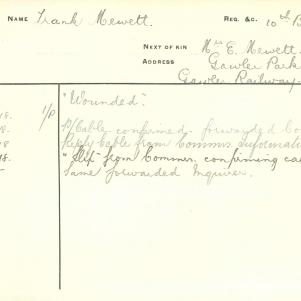 NAME Frank Mewett. REG. &C. 10th B
NEXT OF KIN Mrs E. Mewett
ADDRESS Gawler Park
Gawler Railway
"Wounded".
18. 1/P P/Cable confirmed forwarded Co
8. Reply Cable from Commr.
18. "Slip" from Commr. confirming ca
Same forwarded Inquirer.